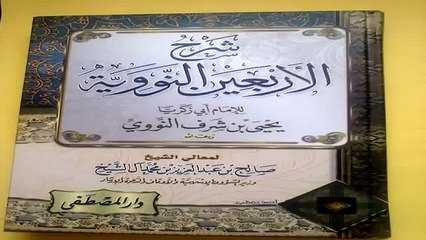 شرح
الأربعين النووية
للإمام أبي زكريا
يحيى بن شرف النووي
لمعالي الشيخ
صالح بن عبد العزيز بن محمد آل الشيخ
دار المصطفى